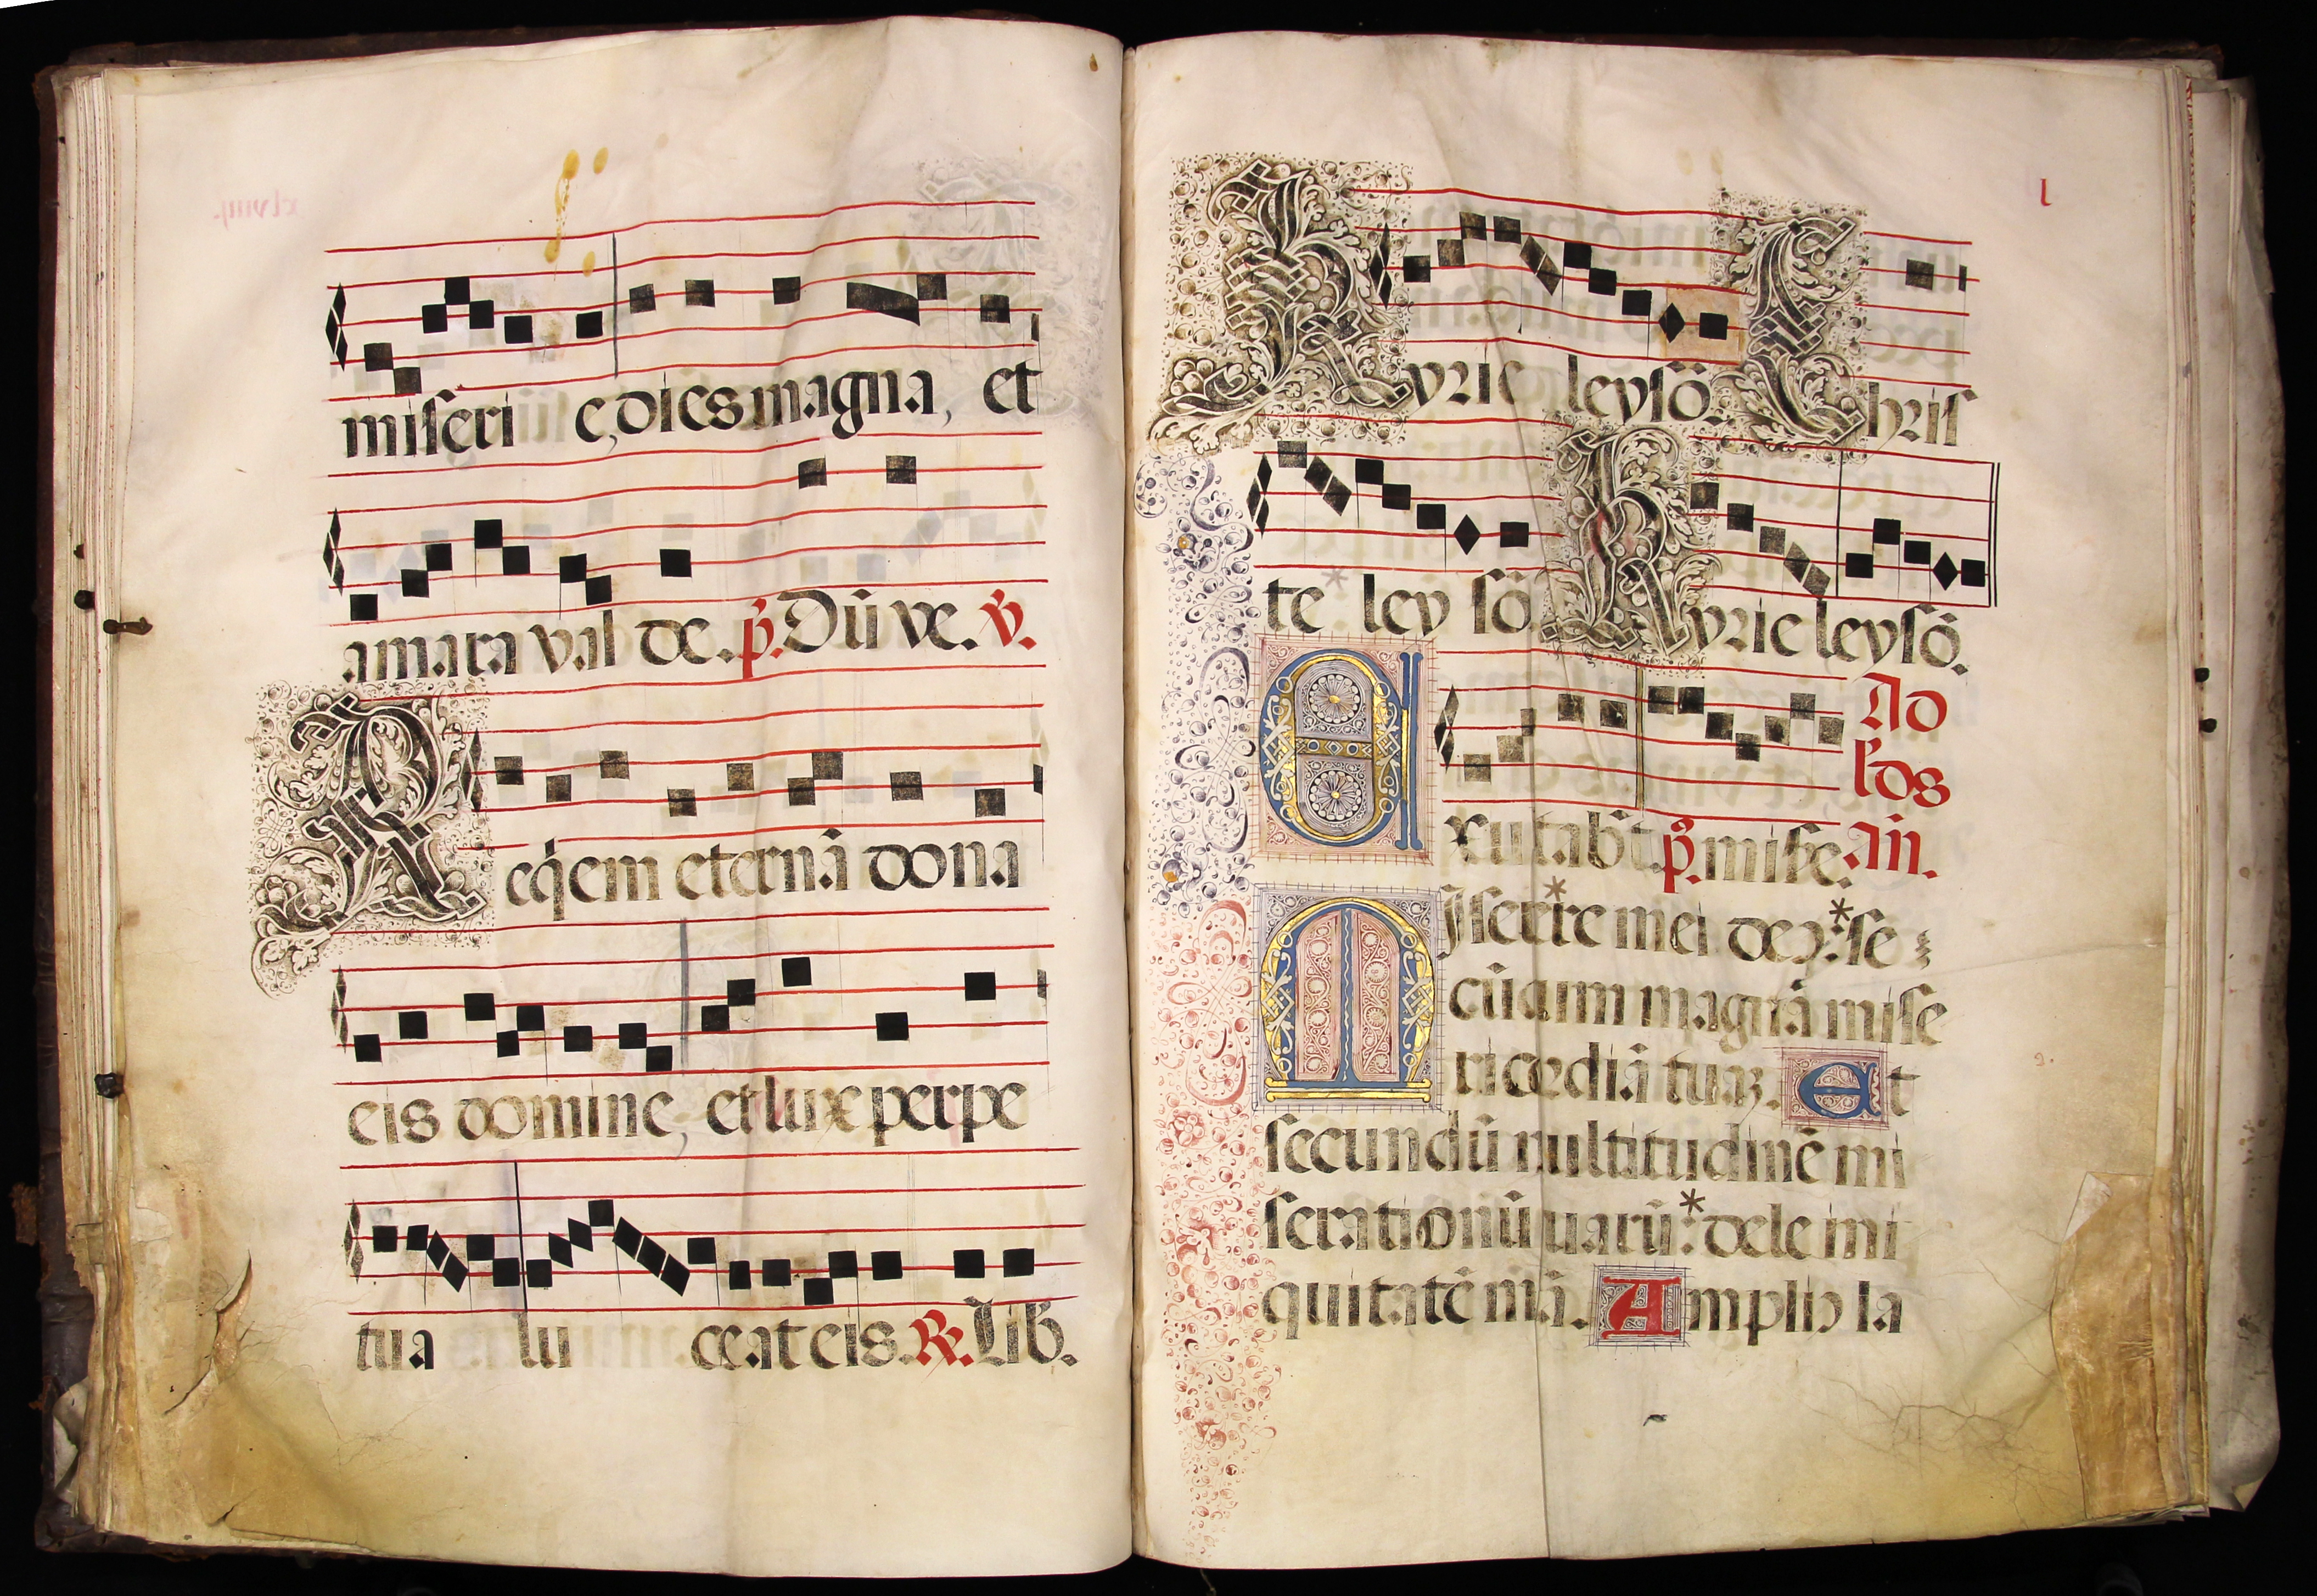 miseri e, dies magna, et
amara val de. p̃. Dū ve. v̄.
Req̇em eternā dona
eis domine, et luxe perpe
tua lu ceat eis. R̃. Lib.
l
Kyrie leysō. Chris
te * ley sō. Kyrie leysō.
Ad
lꝰds
Exultab̃t p̃. mise. añ.
MIserere * mei deꝰ: * se
cūdum magnā mise
ricordiā tuaꝫ. Et
secundū multitudinē mi
serationū tuarū: * dele ini
quitatē mā. Ampliꝰ la